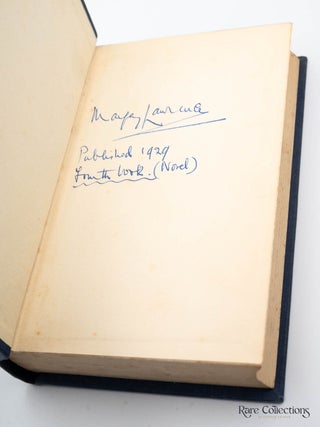 Margery Lawrence
Published 1929
Fourth book. (Novel)
Rare Collections